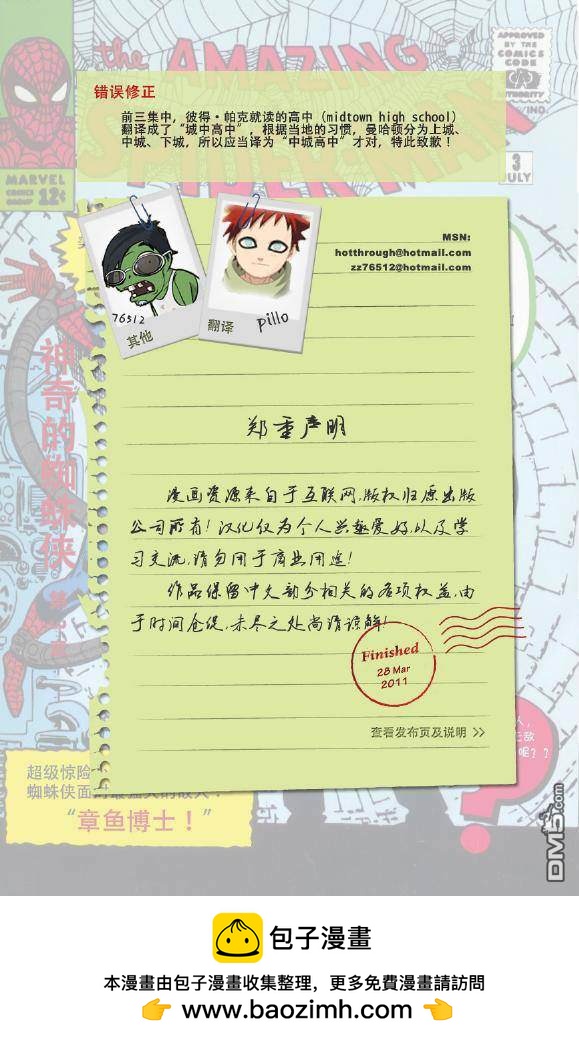 the AMAZING
SPIDER-MAN
APPROVED
BY THE
COMICS
CODE
AUTHORITY
MARVEL
COMICS
GROUP 12¢
3
JULY
错误修正
前三集中，彼得·帕克就读的高中（midtown high school）
翻译成了“城中高中”，根据当地的习惯，曼哈顿分为上城、
中城、下城，所以应当译为“中城高中”才对，特此致歉！
MSN:
hotthrough@hotmail.com
zz76512@hotmail.com
76512
其他
翻译 pillo
神奇的蜘蛛侠
郑重声明
漫画资源来自于互联网，版权归原出版
公司所有！汉化仅为个人兴趣爱好，以及学
习交流，请勿用于商业用途！
作品保留中文部分相关的各项权益，由
于时间仓促，未尽之处尚请谅解！
Finished
28 Mar
2011
查看发布页及说明 >>
超级惊险
“章鱼博士！”
DM5.com
包子漫畫
本漫畫由包子漫畫收集整理，更多免費漫畫請訪問
👉 www.baozimh.com 👈